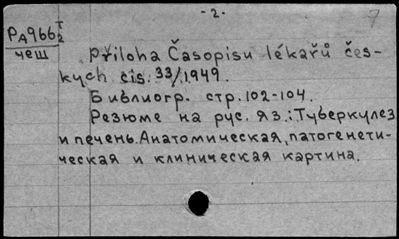 - 2. -
7
PA966 T/2
чеш
Příloha Časopisu lékařů čes-
kých čis. 33/1949.
Библиогр. стр. 102-104.
Резюме на рус. яз.: Туберкулез
и печень. Анатомическая, патогенети-
ческая и клиническая картина.